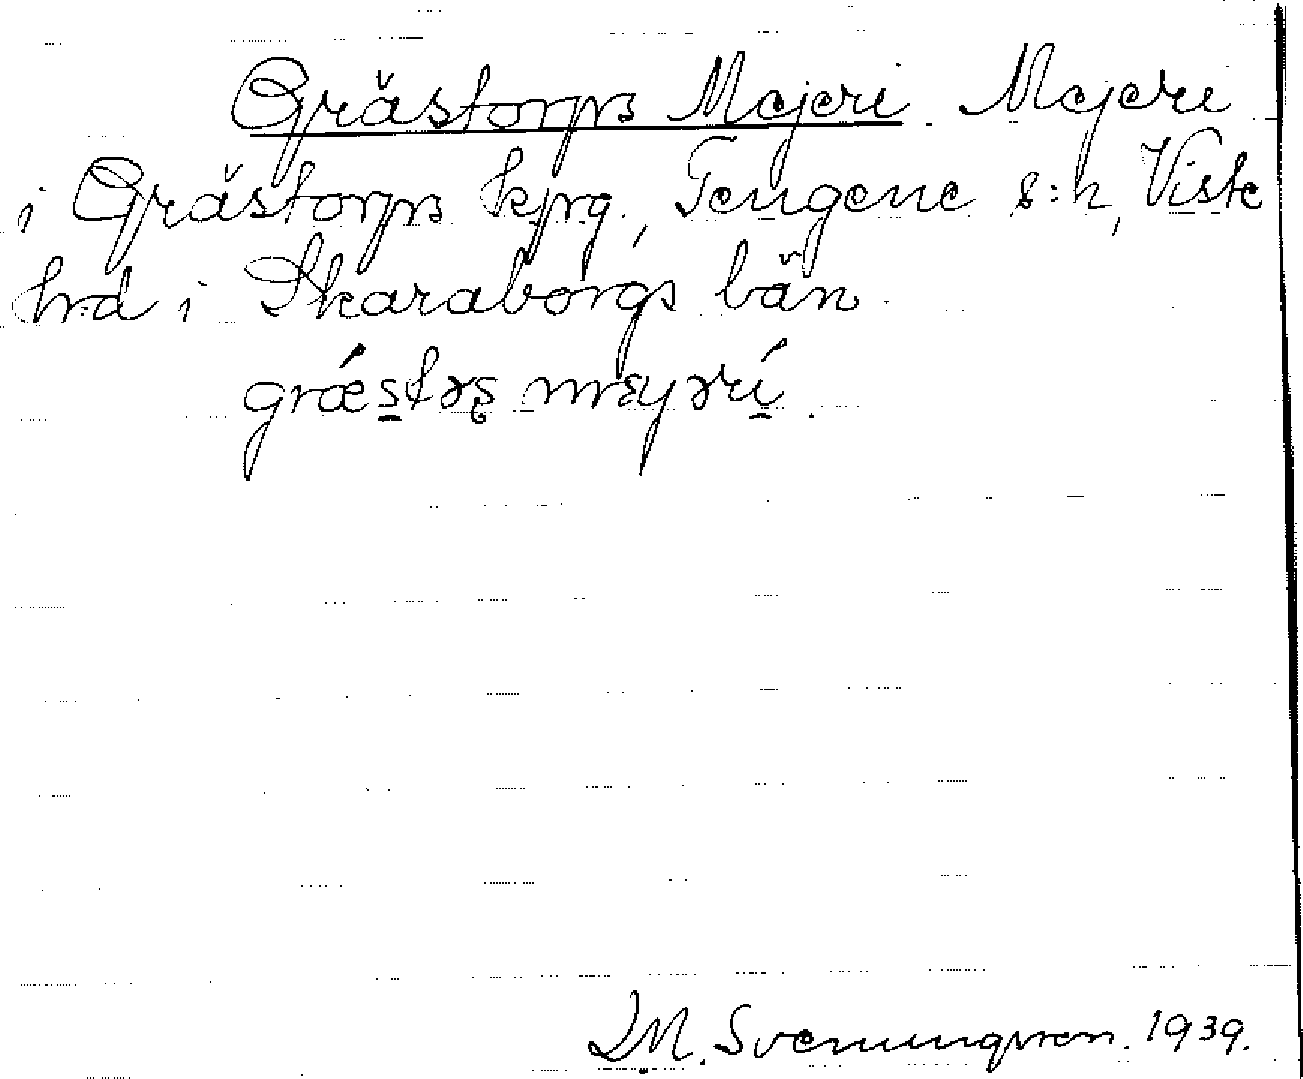 Grästorps Mejeri. Mejeri
i Grästorps kpg., Tengene s:n, Viste
hrd i Skaraborgs län.
græ´stərs mɛyərí.
M. Svenungsson. 1939.